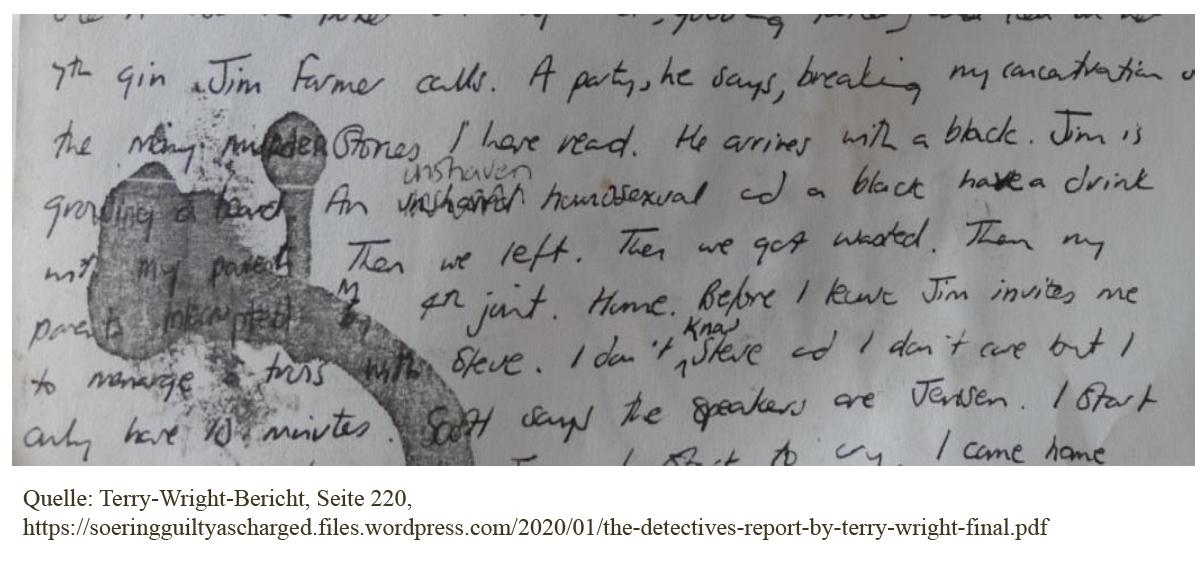 7th gin Jim Farmer calls. A party, he says, breaking my concentration
the many murder stories I have read. He arrives with a black. Jim is
unshaven
growing a beard. An homosexual ad a black have a drink
with my parents Then we left. Then we got wasted. Then my
parents interrupted 4th joint. Home. Before I leave Jim invites me
Know
to menarge a trois with Steve. I don't Steve ad I don't care but I
only have 10 minutes. Scott says the speakers are Jensen. I start
I start to cry. I came home
Quelle: Terry-Wright-Bericht, Seite 220,
https://soeringguiltyascharged.files.wordpress.com/2020/01/the-detectives-report-by-terry-wright-final.pdf